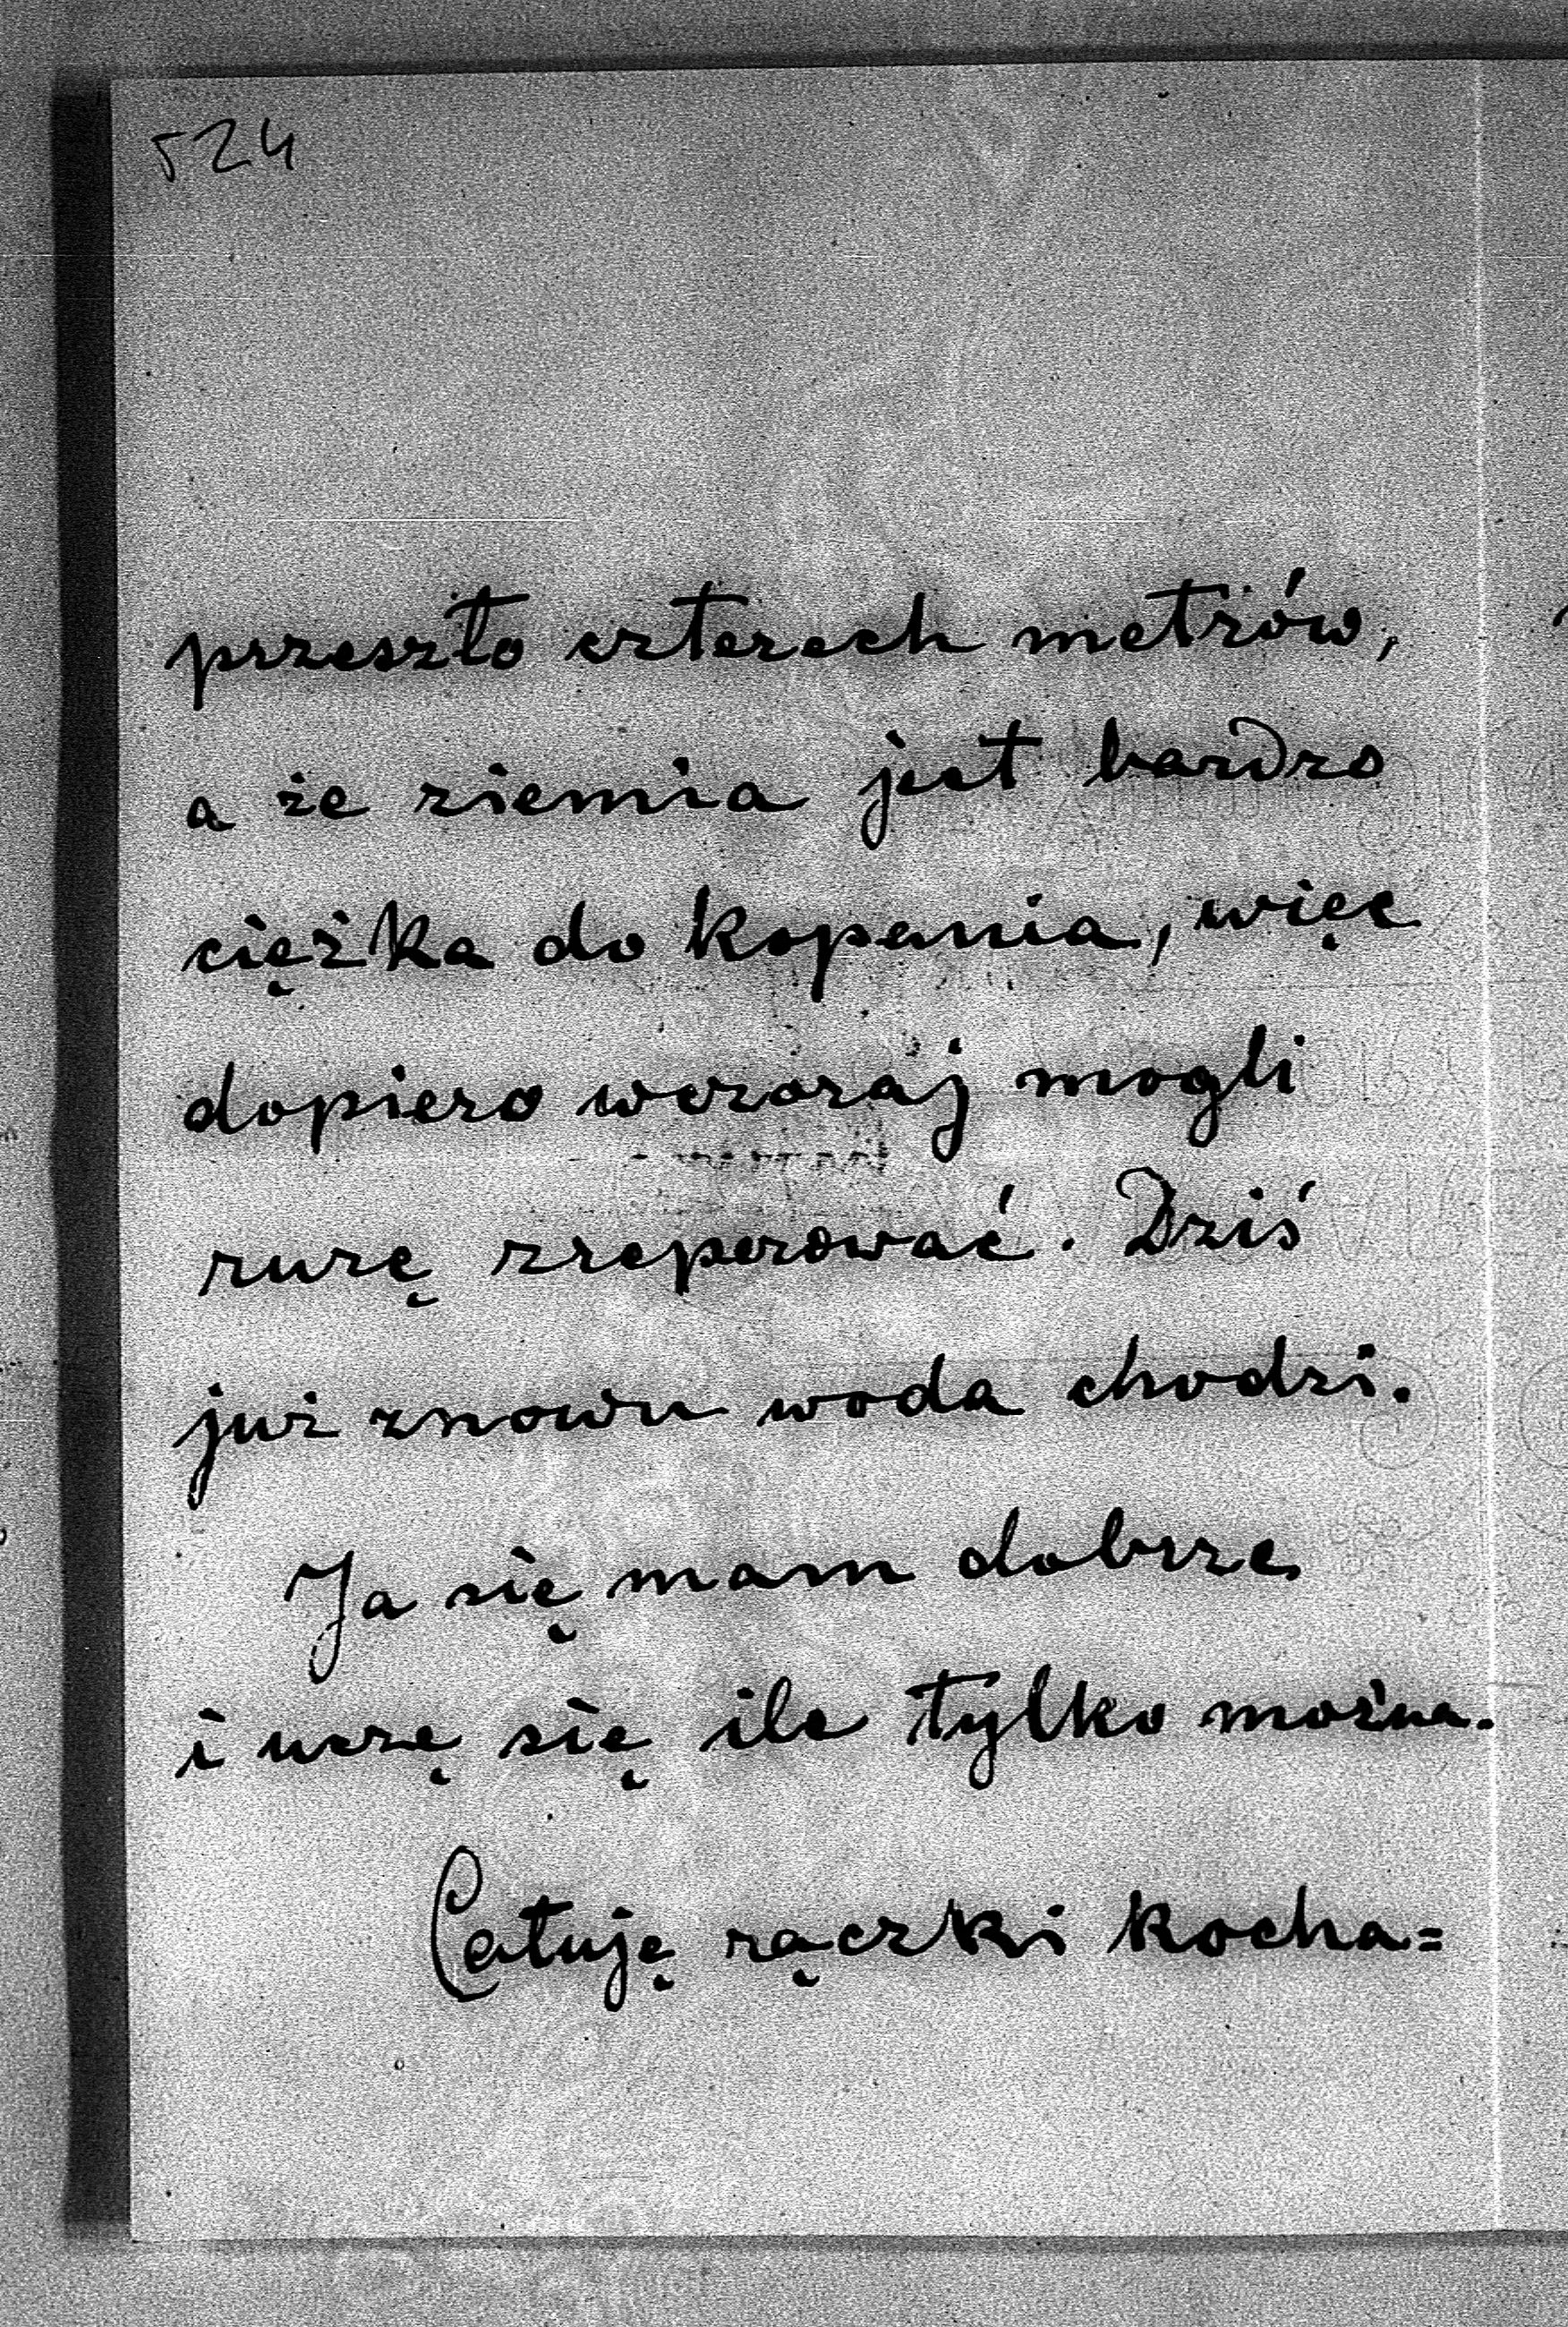 524
przeszło czterech metrów,
a że ziemia jest bardzo
ciężka do kopania, więc
dopiero wczoraj mogli
rurę zreperować. Dziś
już znowu woda chodzi.
Ja się mam dobrze
i uczę się ile tylko można.
Całuję rączki kocha=